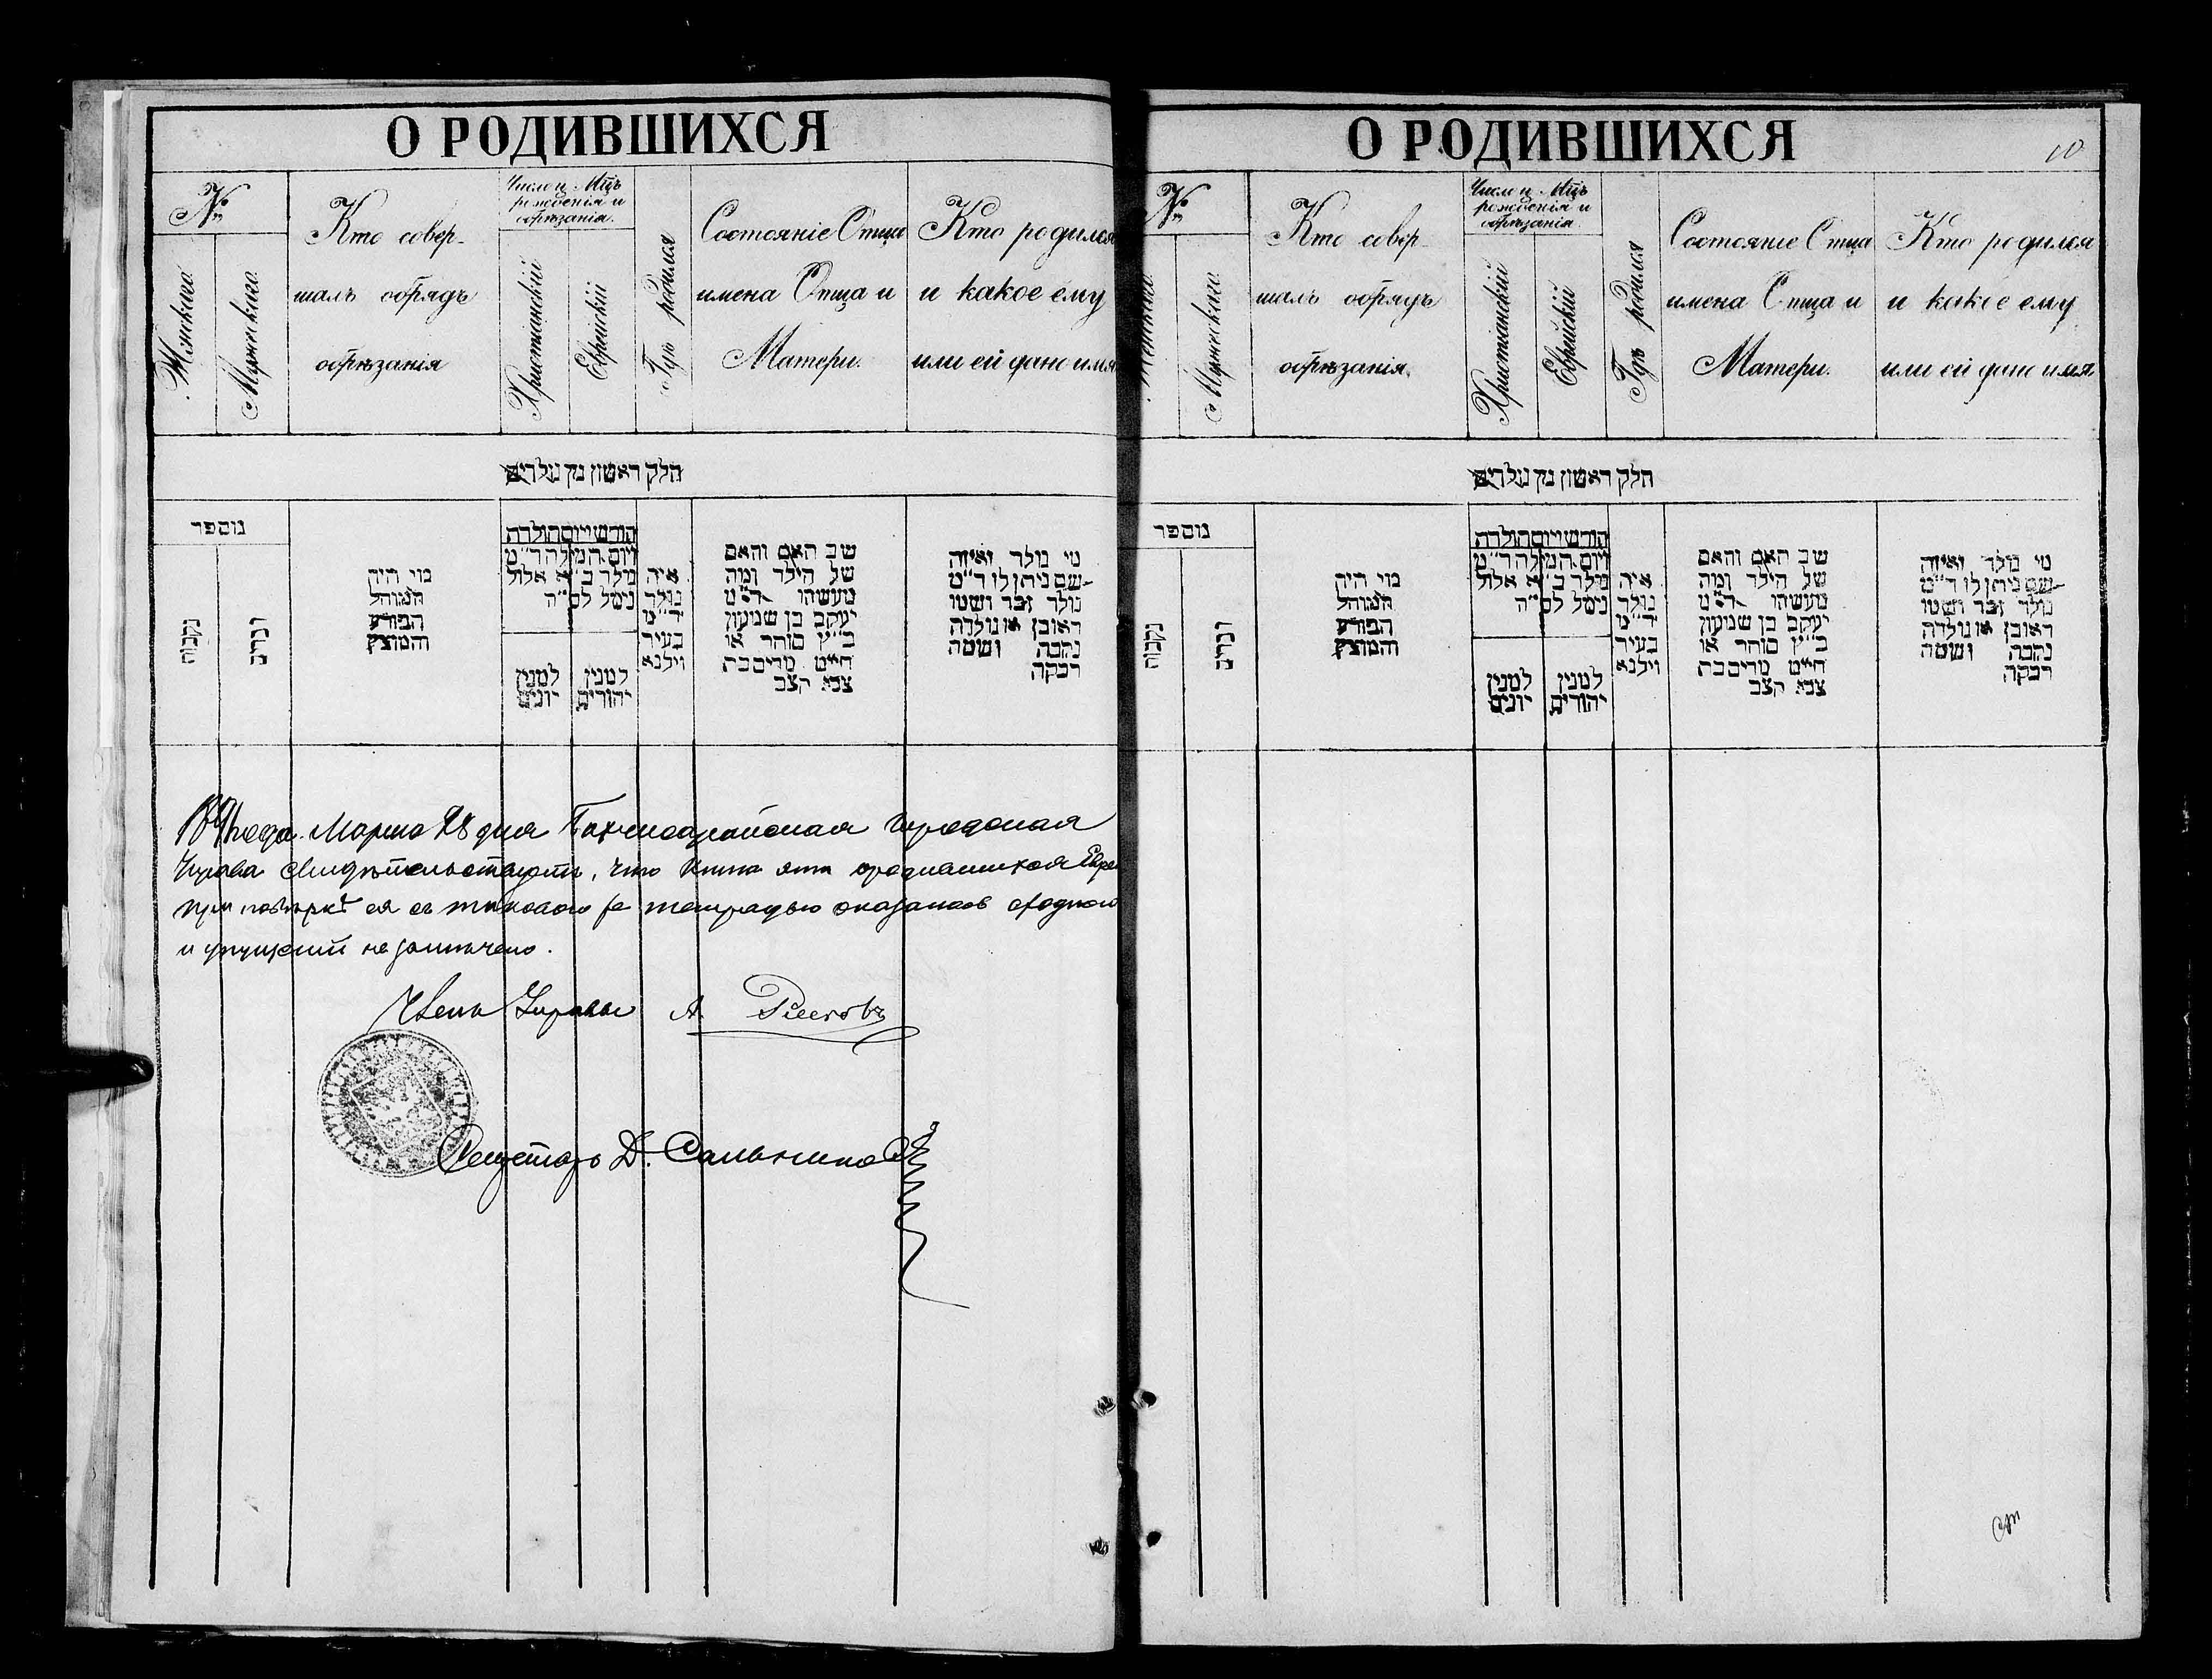 О РОДИВШИХСЯ
№
Женскаго
Мужескаго
Кто совер-
шалъ обрядъ
обрѣзанія
Число и Мцъ
рожденія и
обрѣзанія.
Христіанскій
Еврейскій
Гдѣ родился
Состояніе Отца
имена Отца и
Матери.
Кто родился
и какое ему
или ей дано имя
חלק ראשון מן נולדים
מוספר
נקבות
זכרים
מי היה
המוהל
הפורע
והמוצץ
חודש ויום הולדת
ויום המילה ד״מ
נולד ב׳ א אלול
נימל לס״ה
למנין
יונים
למנין
יהודים
איה
נולד
ד״מ
בעיר
וילנא
שב האם והאם
של הילד ומה
מעשהו ד״מ
יעקב בן שמעון
כ״ץ סוחר או
חייט מרים בת
צבי קצב
מי נולד ואיזה
שם ניתן לו ד״מ
נולד זכר ושמו
ראובן או נולדה
נקבה ושמה
רבקה
года Марта 28 дня Бахчисарайская Городская
Управа свидѣтельствуетъ, что книга эта о родившихся Евре
при повѣркѣ ея съ таковою же тетрадью оказалась сходною
и упущеній не замѣчено.
Членъ Управы А.
Секретарь Д.
О РОДИВШИХСЯ
10
№
Женскаго
Мужескаго
Кто совер-
шалъ обрядъ
обрѣзанія.
Число и Мцъ
рожденія и
обрѣзанія.
Христіанскій
Еврейскій
Гдѣ родился
Состояніе Отца
имена Отца и
Матери.
Кто родился
и какое ему
или ей дано имя
חלק ראשון מן נולדים
מוספר
נקבות
זכרים
מי היה
המוהל
הפורע
והמוצץ
חודש ויום הולדת
ויום המילה ד״מ
נולד ב׳ א אלול
נימל לס״ה
למנין
יונים
למנין
יהודים
איה
נולד
ד״מ
בעיר
וילנא
שב האם והאם
של הילד ומה
מעשהו ד״מ
יעקב בן שמעון
כ״ץ סוחר או
חייט מרים בת
צבי קצב
מי נולד ואיזה
שם ניתן לו ד״מ
נולד זכר ושמו
ראובן או נולדה
נקבה ושמה
רבקה